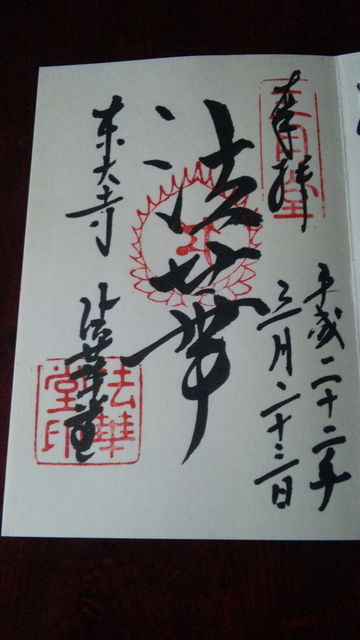 奉拝
三月堂
平成二十二年
三月二十三日
法華
東大寺
法華堂
法華堂印